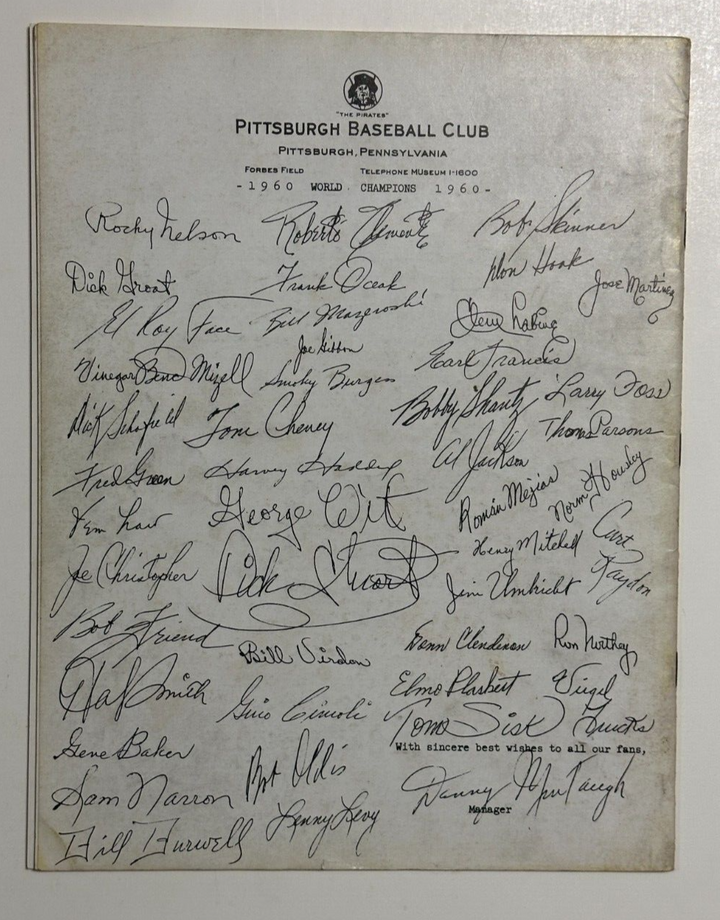 "THE PIRATES"
PITTSBURGH BASEBALL CLUB
PITTSBURGH, PENNSYLVANIA
FORBES FIELD TELEPHONE MUSEUM 1-1600
-1960 WORLD CHAMPIONS 1960-
Rocky Nelson Roberto Clemente Bob Skinner
Dick Groat Frank Oceak Don Hoak Jose Martinez
El Roy Face Bill Mazeroski Clem Labine
Joe Gibbon
Vinegar Bend Mizell Smoky Burgess Earl Francis
Dick Schofield Tom Cheney Bobby Shantz Larry Foss
Fred Green Harvey Haddix Al Jackson Thomas Parsons
Vern Law George Witt Román Mejias Norm Housley
Joe Christopher Dick Stuart Henry Mitchell Curt Raydon
Jim Umbricht
Bob Friend Bill Virdon Donn Clendenon Ron Northey
Hal Smith Gino Cimoli Elmo Plaskett Virgil Trucks
Tom Sisk
Gene Baker With sincere best wishes to all our fans,
Sam Narron Bob Oldis Danny Murtaugh
Manager
Bill Burwell Lenny Levy